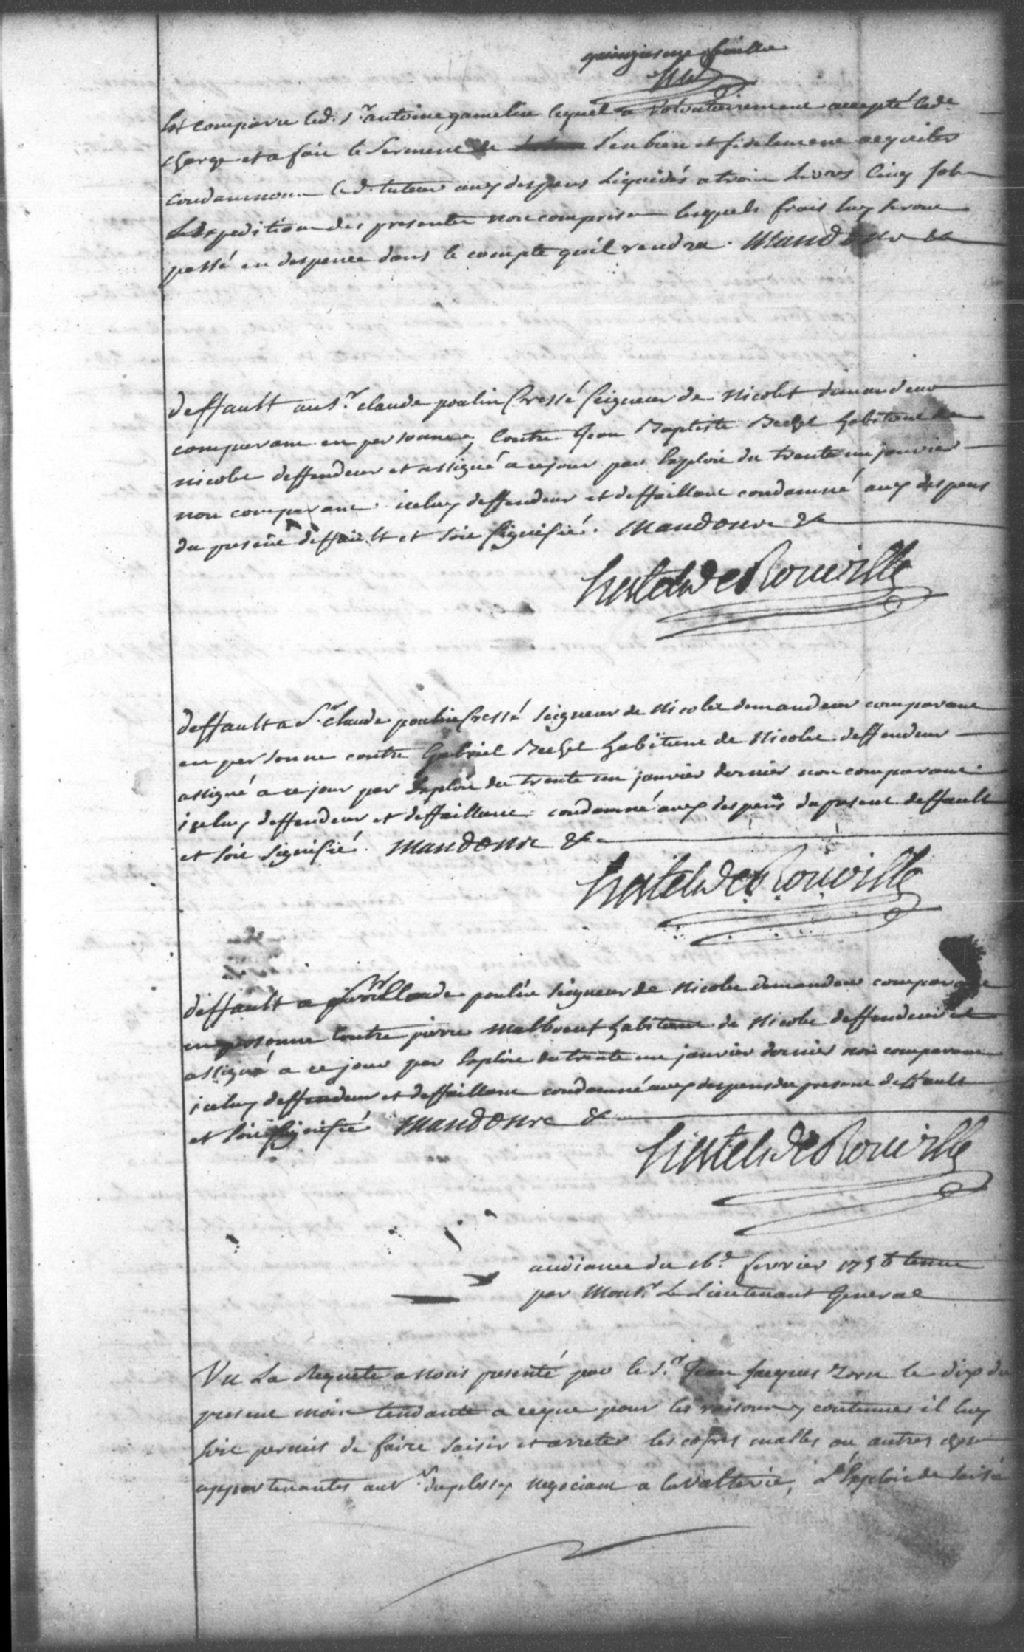 quinziesme feuille
est comparu led. Sr. antoine gamelin lequel a volontairement accepté lade
charge et a fait le serment de s'en bien et fidelement acquitter
condamnons led. tuteur aux depens liquidés a trois livres cinq sols
L'expedition des presentes non comprise lesquels frais luy seront
passé en depence dans le compte quil rendra. Mandons &a
deffault au Sr. claude poulin Cressé Seigneur de Nicolet demandeur
comparant en personne, Contre Jean Baptiste habitant de
nicolet deffendeur et assigné a ce jour par Exploit du trente un janvier
non comparant iceluy deffendeur et deffaillant condamné aux depens
du present deffault et soit signifié. Mandons &a
hertel De Rouville
deffault a Sr. claude poulin Cressé Seigneur de Nicolet demandeur comparant
en personne contre Gabriel habitant de Nicolet deffendeur
assigné a ce jour par Exploit du trente un janvier dernier non comparant
iceluy deffendeur et deffaillant condamné aux depens du present deffault
et soit signifié. Mandons &a
hertel De Rouville
deffault a Claude poulin Seigneur de Nicolet demandeur comparant
en personne Contre pierre Malbeuf habitant de Nicolet deffendeur et
assigné a ce jour par Exploit du trente un janvier dernier non comparant
iceluy deffendeur et deffaillant condamné aux depens du present deffault
et soit signifié Mandons &a
hertel De Rouville
audiance du 16e. fevrier 1756 tenue
par Monsr. Le Lieutenant General
Vu La Requete a nous presenté par le Sr. Jean Jacques Zorn le dix du
present mois tendante a ceque pour les raisons y contenues il luy
soit permis de faire saisir et arreter les cofres malles ou autres
appartenantes au Sr. duplessy negociant a lavalterie, L'Exploit de saisie